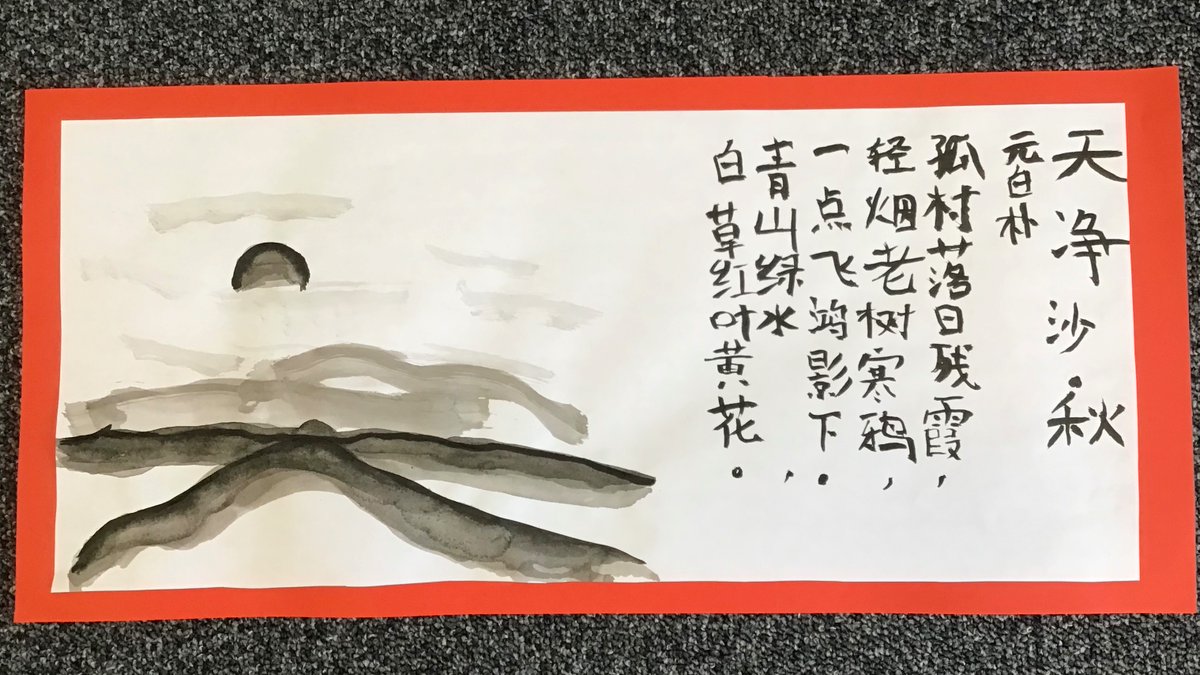 天净沙·秋
元白朴
孤村落日残霞，
轻烟老树寒鸦，
一点飞鸿影下。
青山绿水，
白草红叶黄花。